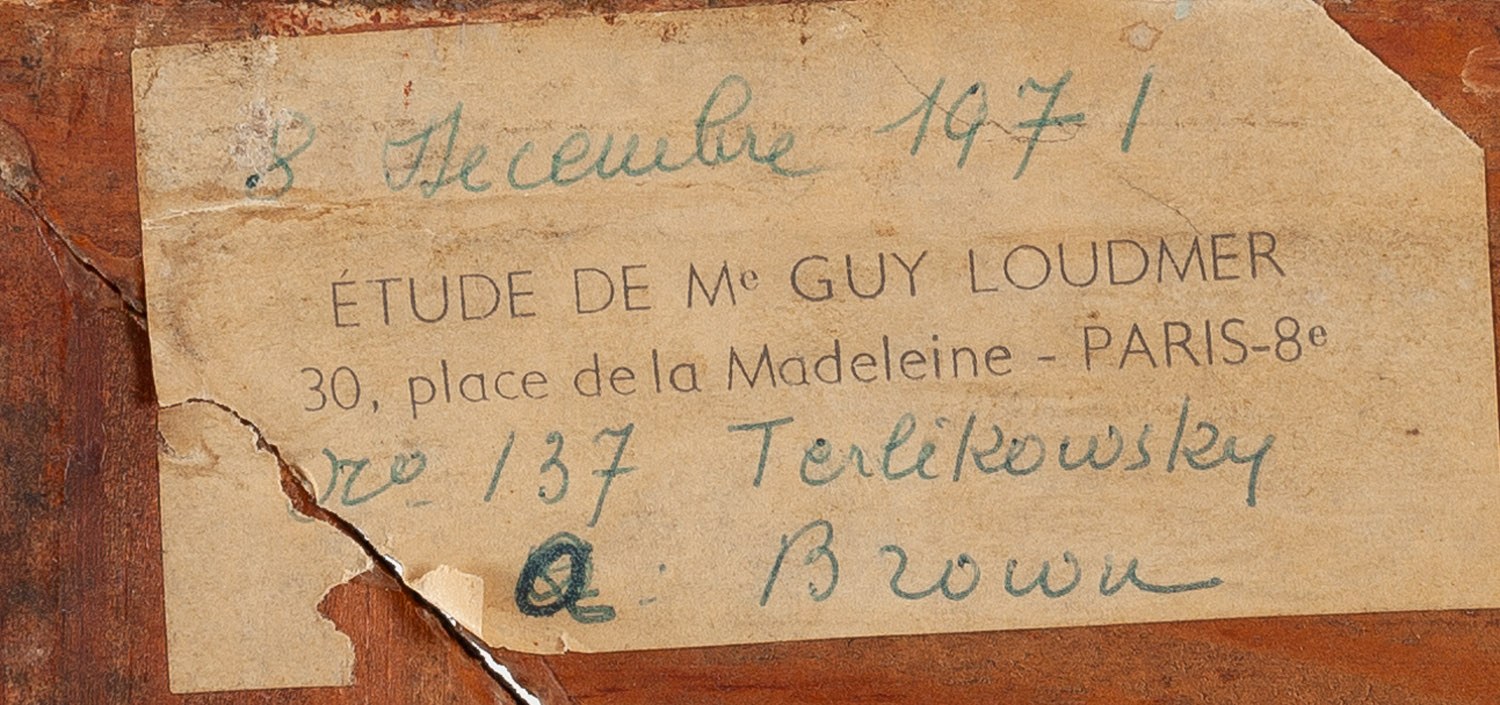 8 Decembre 1971
ÉTUDE DE Mᵉ GUY LOUDMER
30, place de la Madeleine - PARIS-8ᵉ
no 137 Terlikowsky
a : Brown